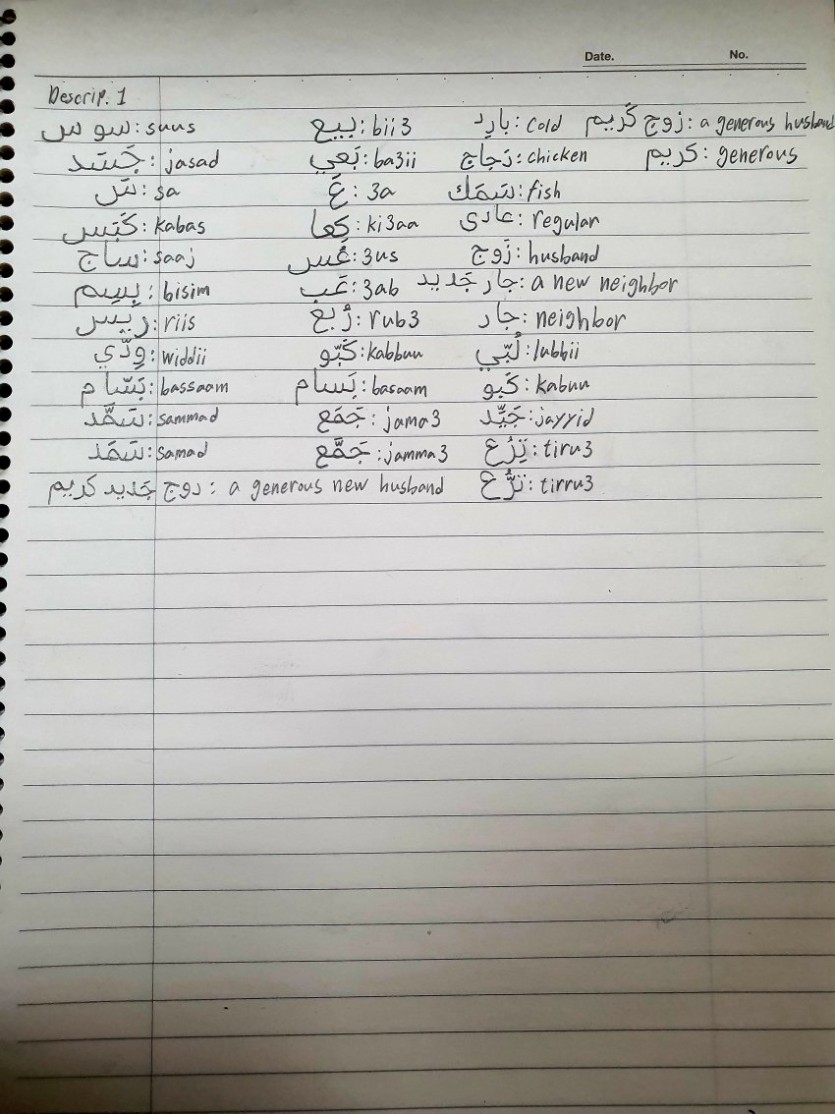 Date. No.
Descrip. 1
سوس: suus بيع: bii3 بارِد: cold زَوج كَريم: a generous husband
جَسَد: jasad بَعي: ba3ii دَجاج: chicken كَريم: generous
سَ: sa عَ: 3a سَمَك: fish
كَبَس: kabas كِعا: ki3aa عادي: regular
ساج: saaj عُس: 3us زَوج: husband
بِسِم: bisim عَب: 3ab جار جَديد: a new neighbor
ريس: riis رُبع: rub3 جار: neighbor
وِدّي: widdii كَبّو: kabbuu لُبّي: lubbii
بَسّام: bassaam بَسام: basaam كَبو: kabuu
سَمَّد: sammad جَمَع: jama3 جَيِّد: jayyid
سَمَد: samad جَمَّع: jamma3 تِرُع: tiru3
دوج جَديد كريم: a generous new husband تِرُّع: tirru3